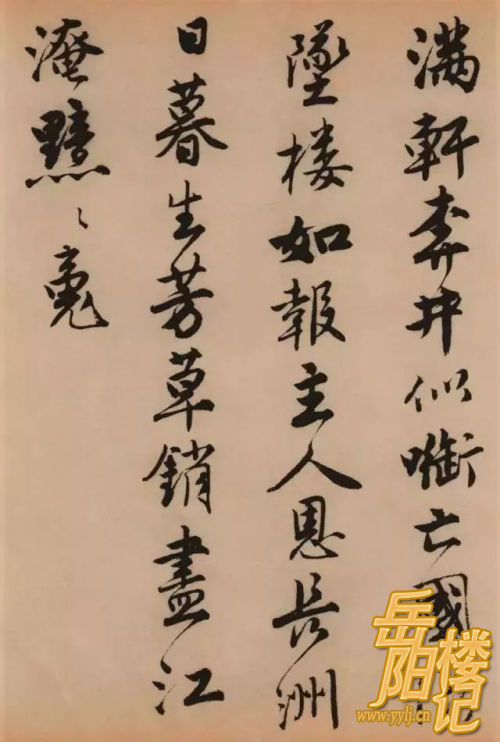 滿軒奔井似啣亡國
墜楼如報主人恩長洲
日暮生芳草銷盡江
淹黯〻魂
岳阳楼记
www.yylj.cn